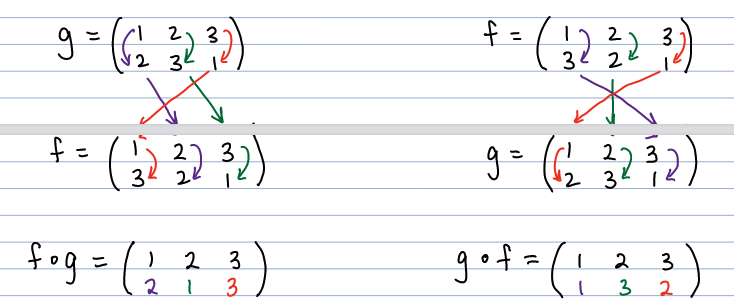 g = ( 1 2 3
2 3 1 )
f = ( 1 2 3
3 2 1 )
f = ( 1 2 3
3 2 1 )
g = ( 1 2 3
2 3 1 )
f∘g = ( 1 2 3
2 1 3 )
g∘f = ( 1 2 3
1 3 2 )